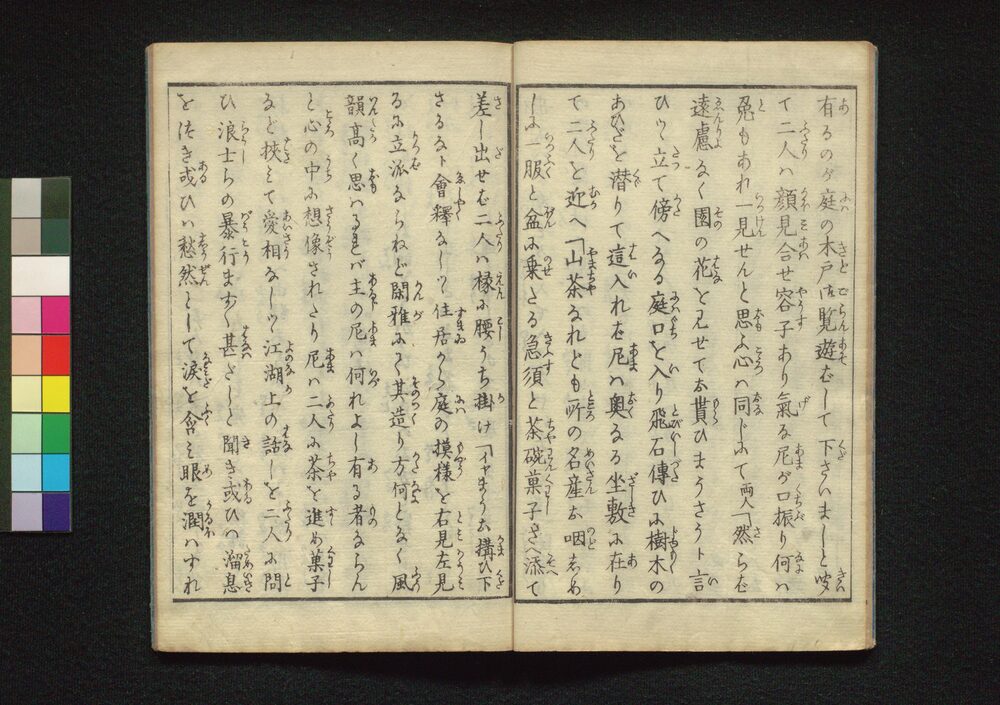 有るのが庭の木戸御覧遊ばして下さいましと咬
て二人ハ顔見合せ容子あり氣る尼が口振り何ハ
兎もあれ一見せんと思ふ心ハ同じふて両人「然らば
遠慮なく園の花を見せてお貰ひまうさうト言
ひつゝ立て傍へなる庭口を入り飛石傳ひに樹木の
あひだを潜りて這入れば尼ハ奥なる坐敷に在り
て二人を近へ「山茶なれども一所の名産お咽しめ
しに一服と盆に乗たる急須と茶碗菓子さへ添て
差し出せば二人ハ椽に腰うち掛け「イヤまうお搆ひ下
さるなト會釋なしつ住居から庭の摸様を右見左見
るに立派ならねど閑雅にて其造り方何となく風
韻高く思ハるれバ主の尼ハ何れよし有る者ならん
と心の中に想像されたり尼ハ二人に茶を進め菓子
など挾ミて愛相なしつ江湖上の話しを二人に問
ひ浪士らの暴行ます〱甚だしと聞き或ひハ溜息
をつき或ひハ愁然として涙を含ミ眼を潤ハすれ